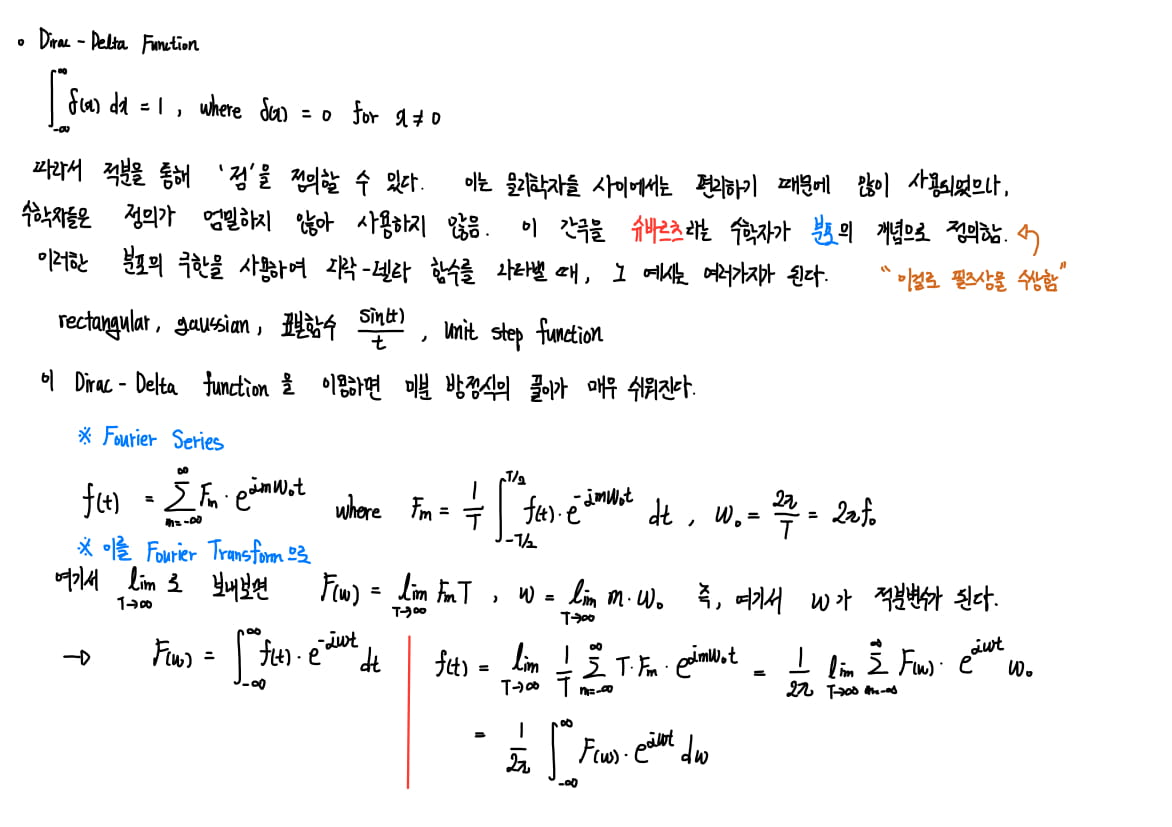 ◦ Dirac-Delta Function
∫_{-∞}^{∞} δ(x) dx = 1, where δ(x) = 0 for x ≠ 0
따라서 적분을 통해 '점'을 정의할 수 있다. 이는 물리학자들 사이에서는 편리하기 때문에 많이 사용되었으나,
수학자들은 정의가 엄밀하지 않아 사용하지 않음. 이 간극을 슈바르츠라는 수학자가 분포의 개념으로 정의함.
이러한 분포의 극한을 사용하여 디락-델타 함수를 나타낼 때, 그 예시는 여러가지가 된다. "이걸로 필즈상을 수상함"
rectangular, gaussian, 표본함수 sin(t)/t, unit step function
이 Dirac-Delta function을 이용하면 미분 방정식의 풀이가 매우 쉬워진다.
※ Fourier Series
f(t) = Σ_{m=-∞}^{∞} F_m · e^{jmω₀t} where F_m = 1/T ∫_{-T/2}^{T/2} f(t) · e^{-jmω₀t} dt, ω₀ = 2π/T = 2πf₀
※ 이를 Fourier Transform으로
여기서 lim_{T→∞} 로 보내보면 F(ω) = lim_{T→∞} F_m T, ω = lim_{T→∞} m · ω₀ 즉, 여기서 ω가 적분변수가 된다.
→ F(ω) = ∫_{-∞}^{∞} f(t) · e^{-jωt} dt | f(t) = lim_{T→∞} 1/T Σ_{m=-∞}^{∞} T · F_m · e^{jmω₀t} = 1/2π lim_{T→∞} Σ_{m=-∞}^{∞} F(ω) · e^{jωt} ω₀
= 1/2π ∫_{-∞}^{∞} F(ω) · e^{jωt} dω